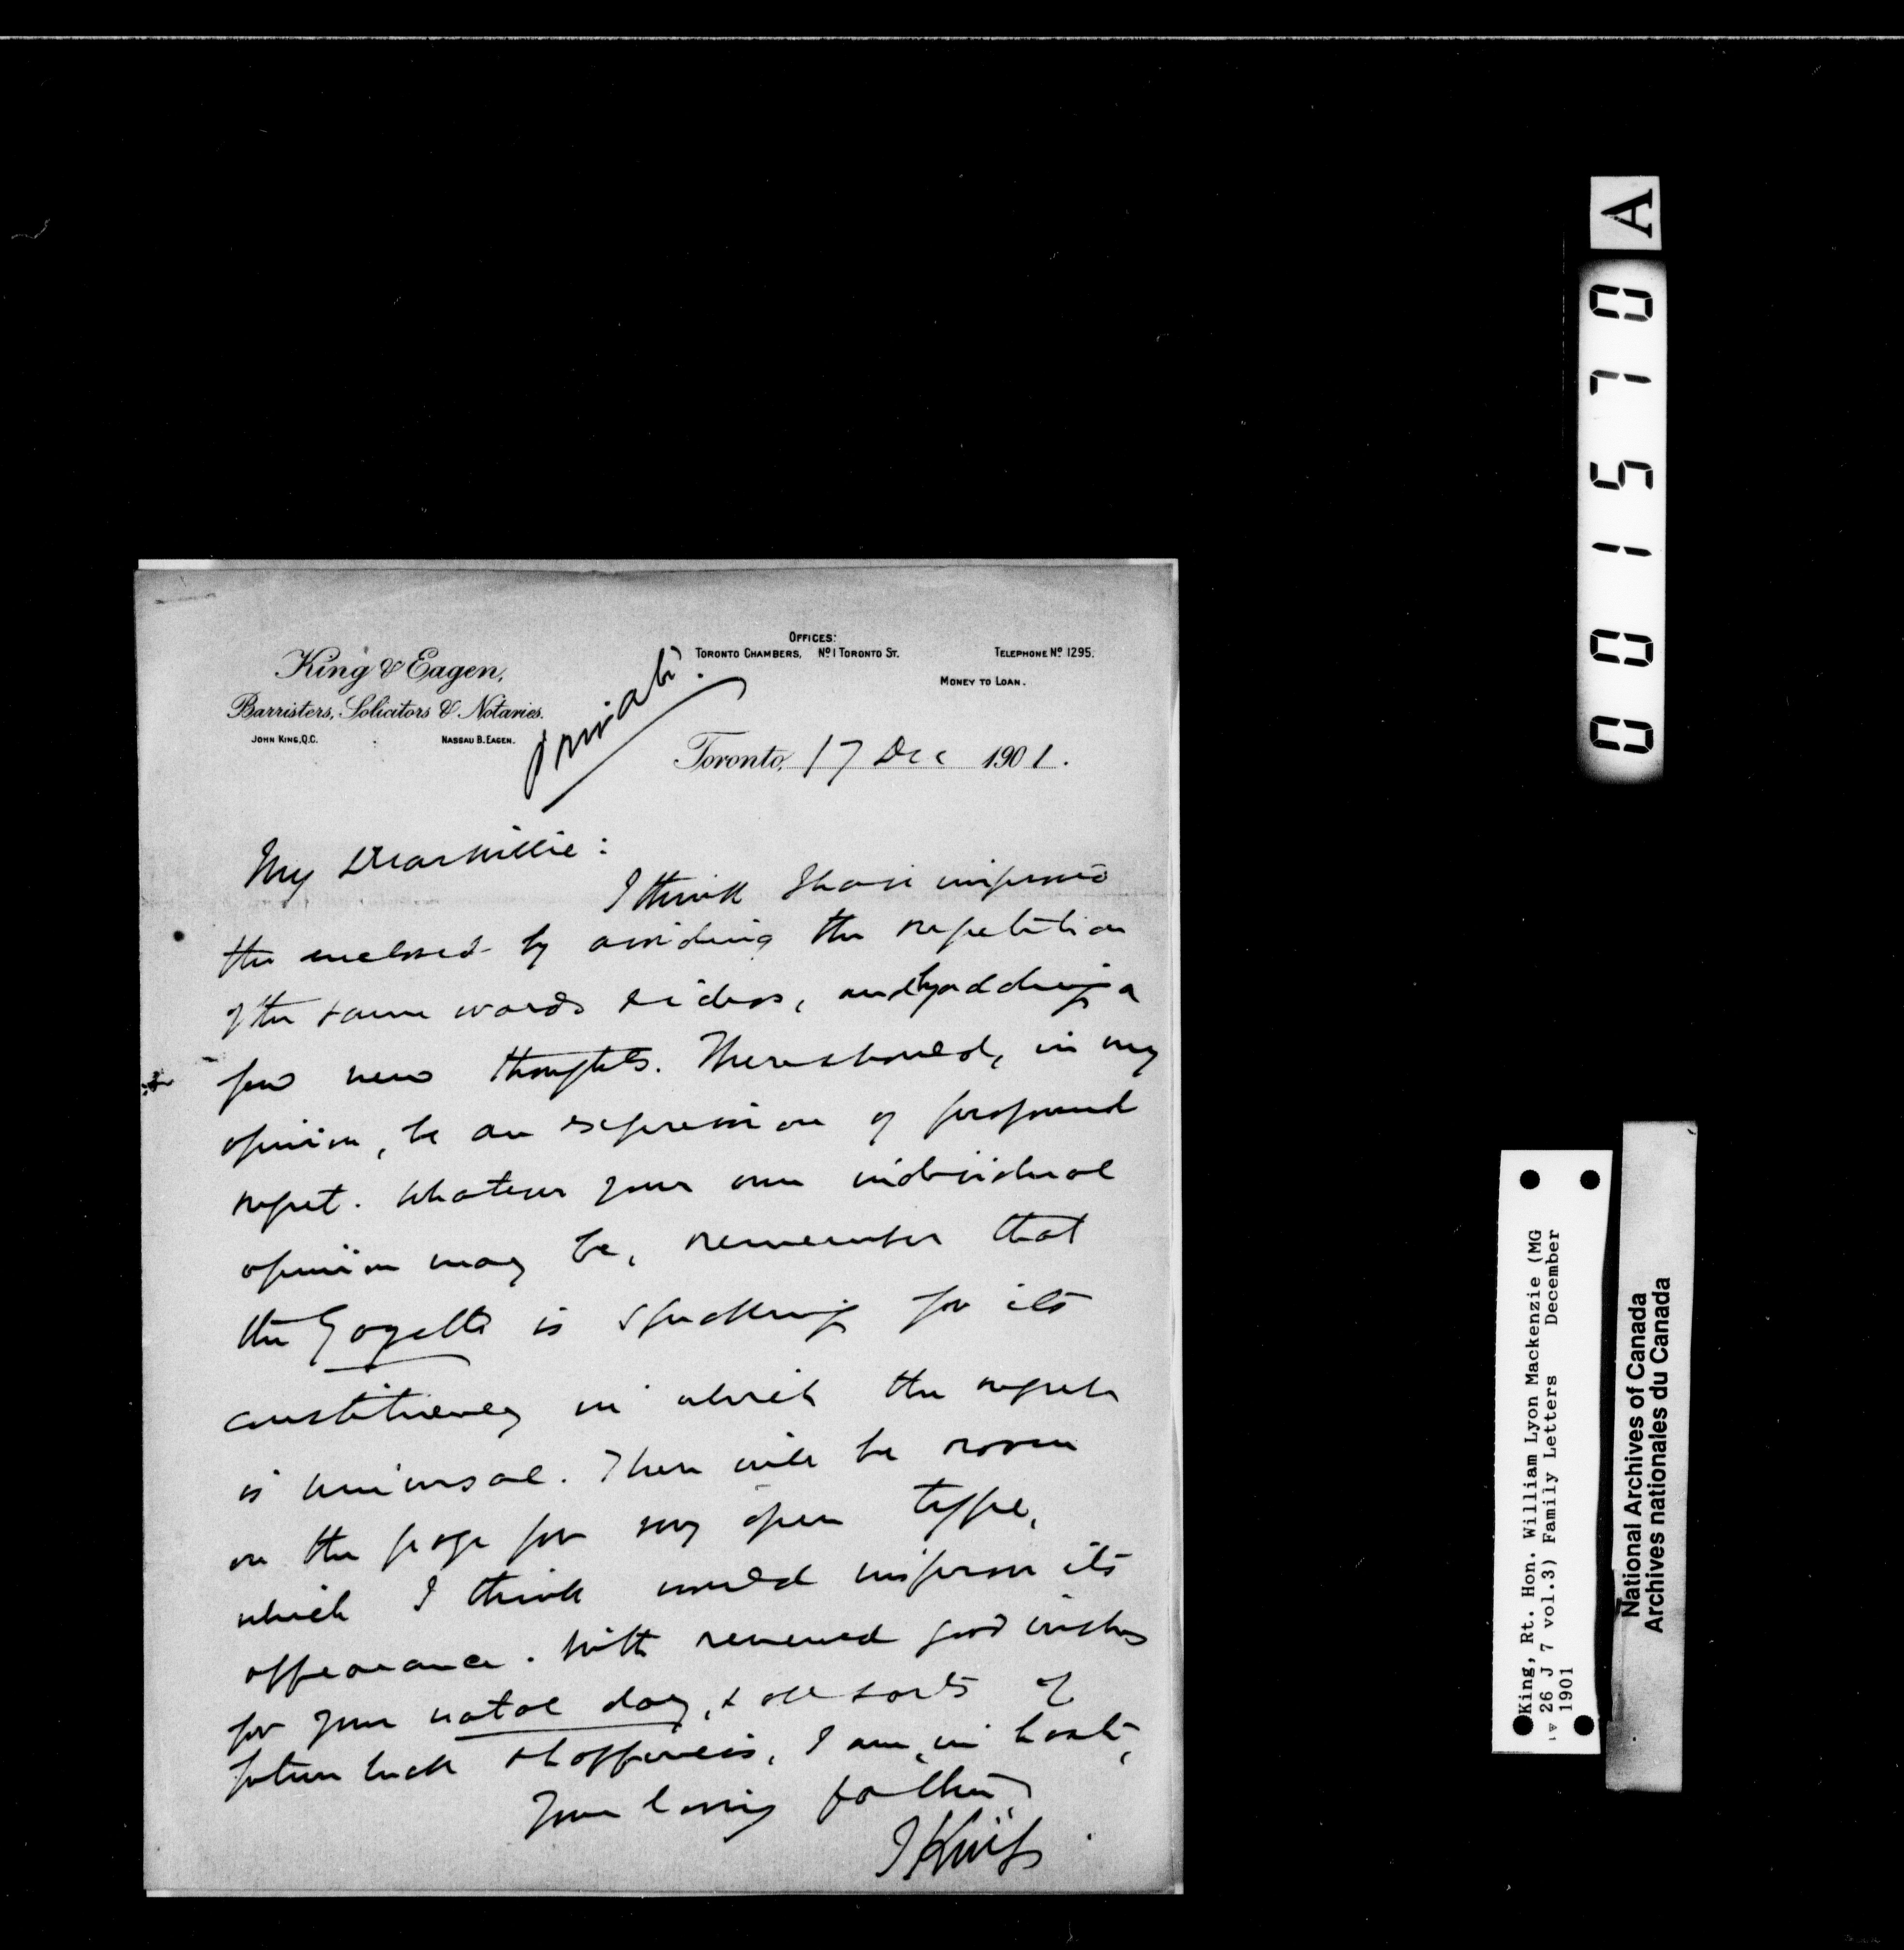 King & Eagen,
Barristers, Solicitors & Notaries.
John King, Q.C. Nassau B. Eagen.
Offices:
Toronto Chambers, No 1 Toronto St.
Telephone No 1295.
Money to Loan.
Private.
Toronto, 17 Dec 1901.
My Dear Willie:
I think I have improved
the enclosed by avoiding the repetition
of the same words & ideas, and by adding a
few new thoughts. There should, in my
opinion, be an expression of profound
regret. Whatever your own individual
opinion may be, remember that
the Gazette is speaking for its
constituency in which the regret
is universal. There will be room
on the page for very open type,
which I think would improve its
appearance. With renewed good wishes
for your natal day, & all sorts of
future luck & happiness, I am, in haste,
Your loving father,
J King
A
001570
King, Rt. Hon. William Lyon Mackenzie (MG
26 J 7 vol.3) Family Letters December
1901
National Archives of Canada
Archives nationales du Canada